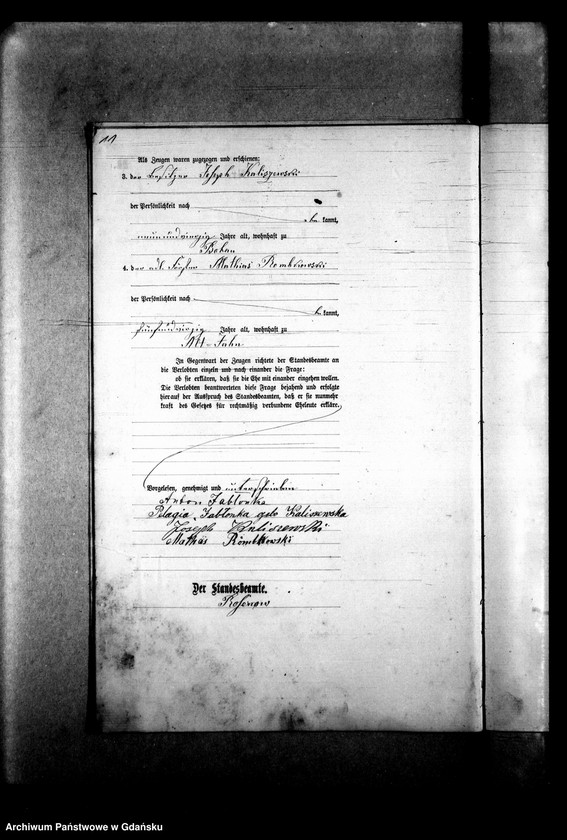 11
Als Zeugen waren zugezogen und erschienen:
3. der Besitzer Joseph Kaliszewski
der Persönlichkeit nach
be kannt,
neunundvierzig Jahre alt, wohnhaft zu
4. der Mathias Rombkowski
der Persönlichkeit nach
be kannt,
fünfundvierzig Jahre alt, wohnhaft zu
Alt-Jahn
In Gegenwart der Zeugen richtete der Standesbeamte an
die Verlobten einzeln und nach einander die Frage:
ob sie erklären, daß sie die Ehe mit einander eingehen wollen.
Die Verlobten beantworteten diese Frage bejahend und erfolgte
hierauf der Ausspruch des Standesbeamten, daß er sie nunmehr
kraft des Gesetzes für rechtmäßig verbundene Eheleute erkläre.
Vorgelesen, genehmigt und unterschrieben
Anton Jabłonka
Pelagia Jabłonka geb Kaliszewska
Joseph Kaliszewski
Mathäs Rombkowski
Der Standesbeamte.
Archiwum Państwowe w Gdańsku